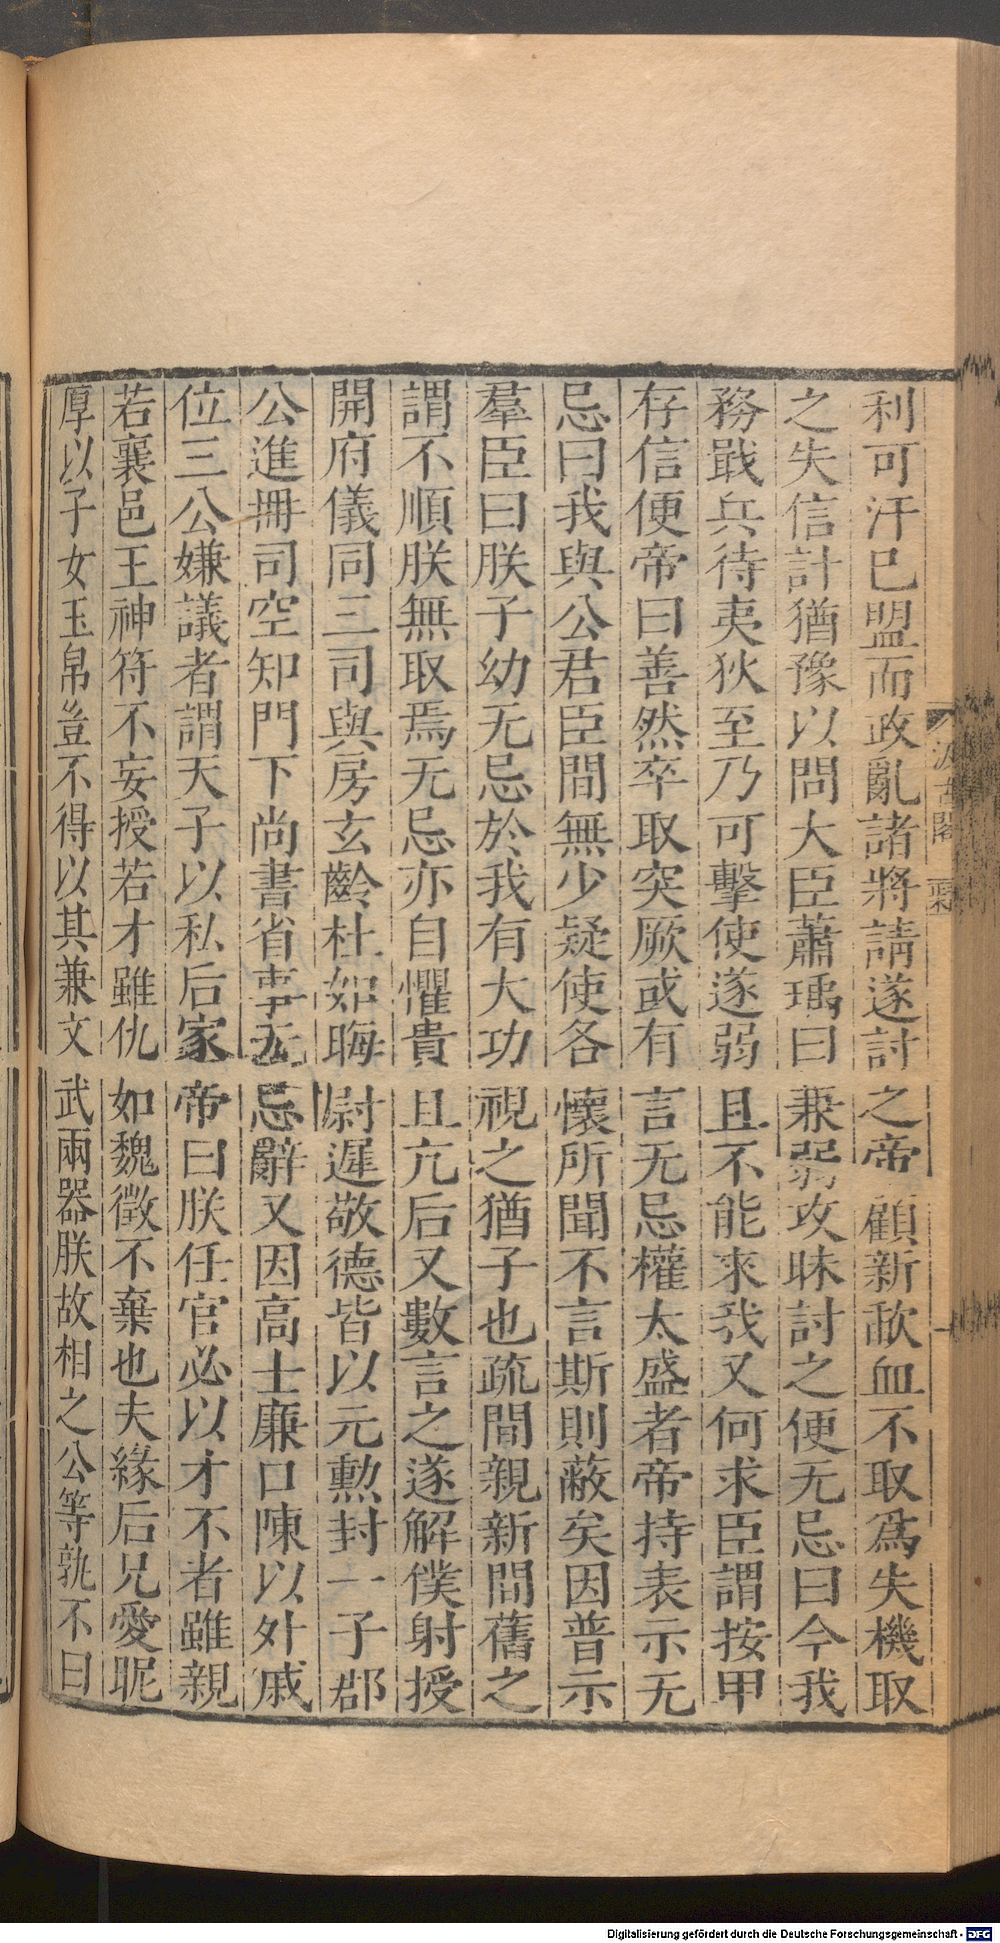 利可汗已盟而政亂諸將請遂討之帝顧新歃血不取爲失機取
之失信計猶豫以問大臣蕭瑀曰兼弱攻昧討之便无忌曰今我
務戢兵待夷狄至乃可擊使遂弱且不能來我又何求臣謂按甲
存信便帝曰善然卒取突厥或有言无忌權太盛者帝持表示无
忌曰我與公君臣間無少疑使各懷所聞不言斯則蔽矣因普示
羣臣曰朕子幼无忌於我有大功視之猶子也疏間親新間舊之
謂不順朕無取焉无忌亦自懼貴且亢后又數言之遂解僕射授
開府儀同三司與房玄齡杜如晦尉遲敬德皆以元勳封一子郡
公進冊司空知門下尚書省事无忌辭又因高士廉口陳以外戚
位三公嫌議者謂天子以私后家帝曰朕任官必以才不者雖親
若襄邑王神符不妄授若才雖仇如魏徵不棄也夫緣后兄愛昵
厚以子女玉帛豈不得以其兼文武兩器朕故相之公等孰不曰
汲古閣
Digitalisierung gefördert durch die Deutsche Forschungsgemeinschaft - DFG